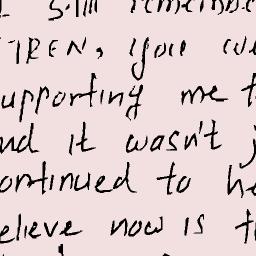 I still remembe
TREN, you we
upporting me t
nd it wasn't j
ontinued to he
elieve now is t